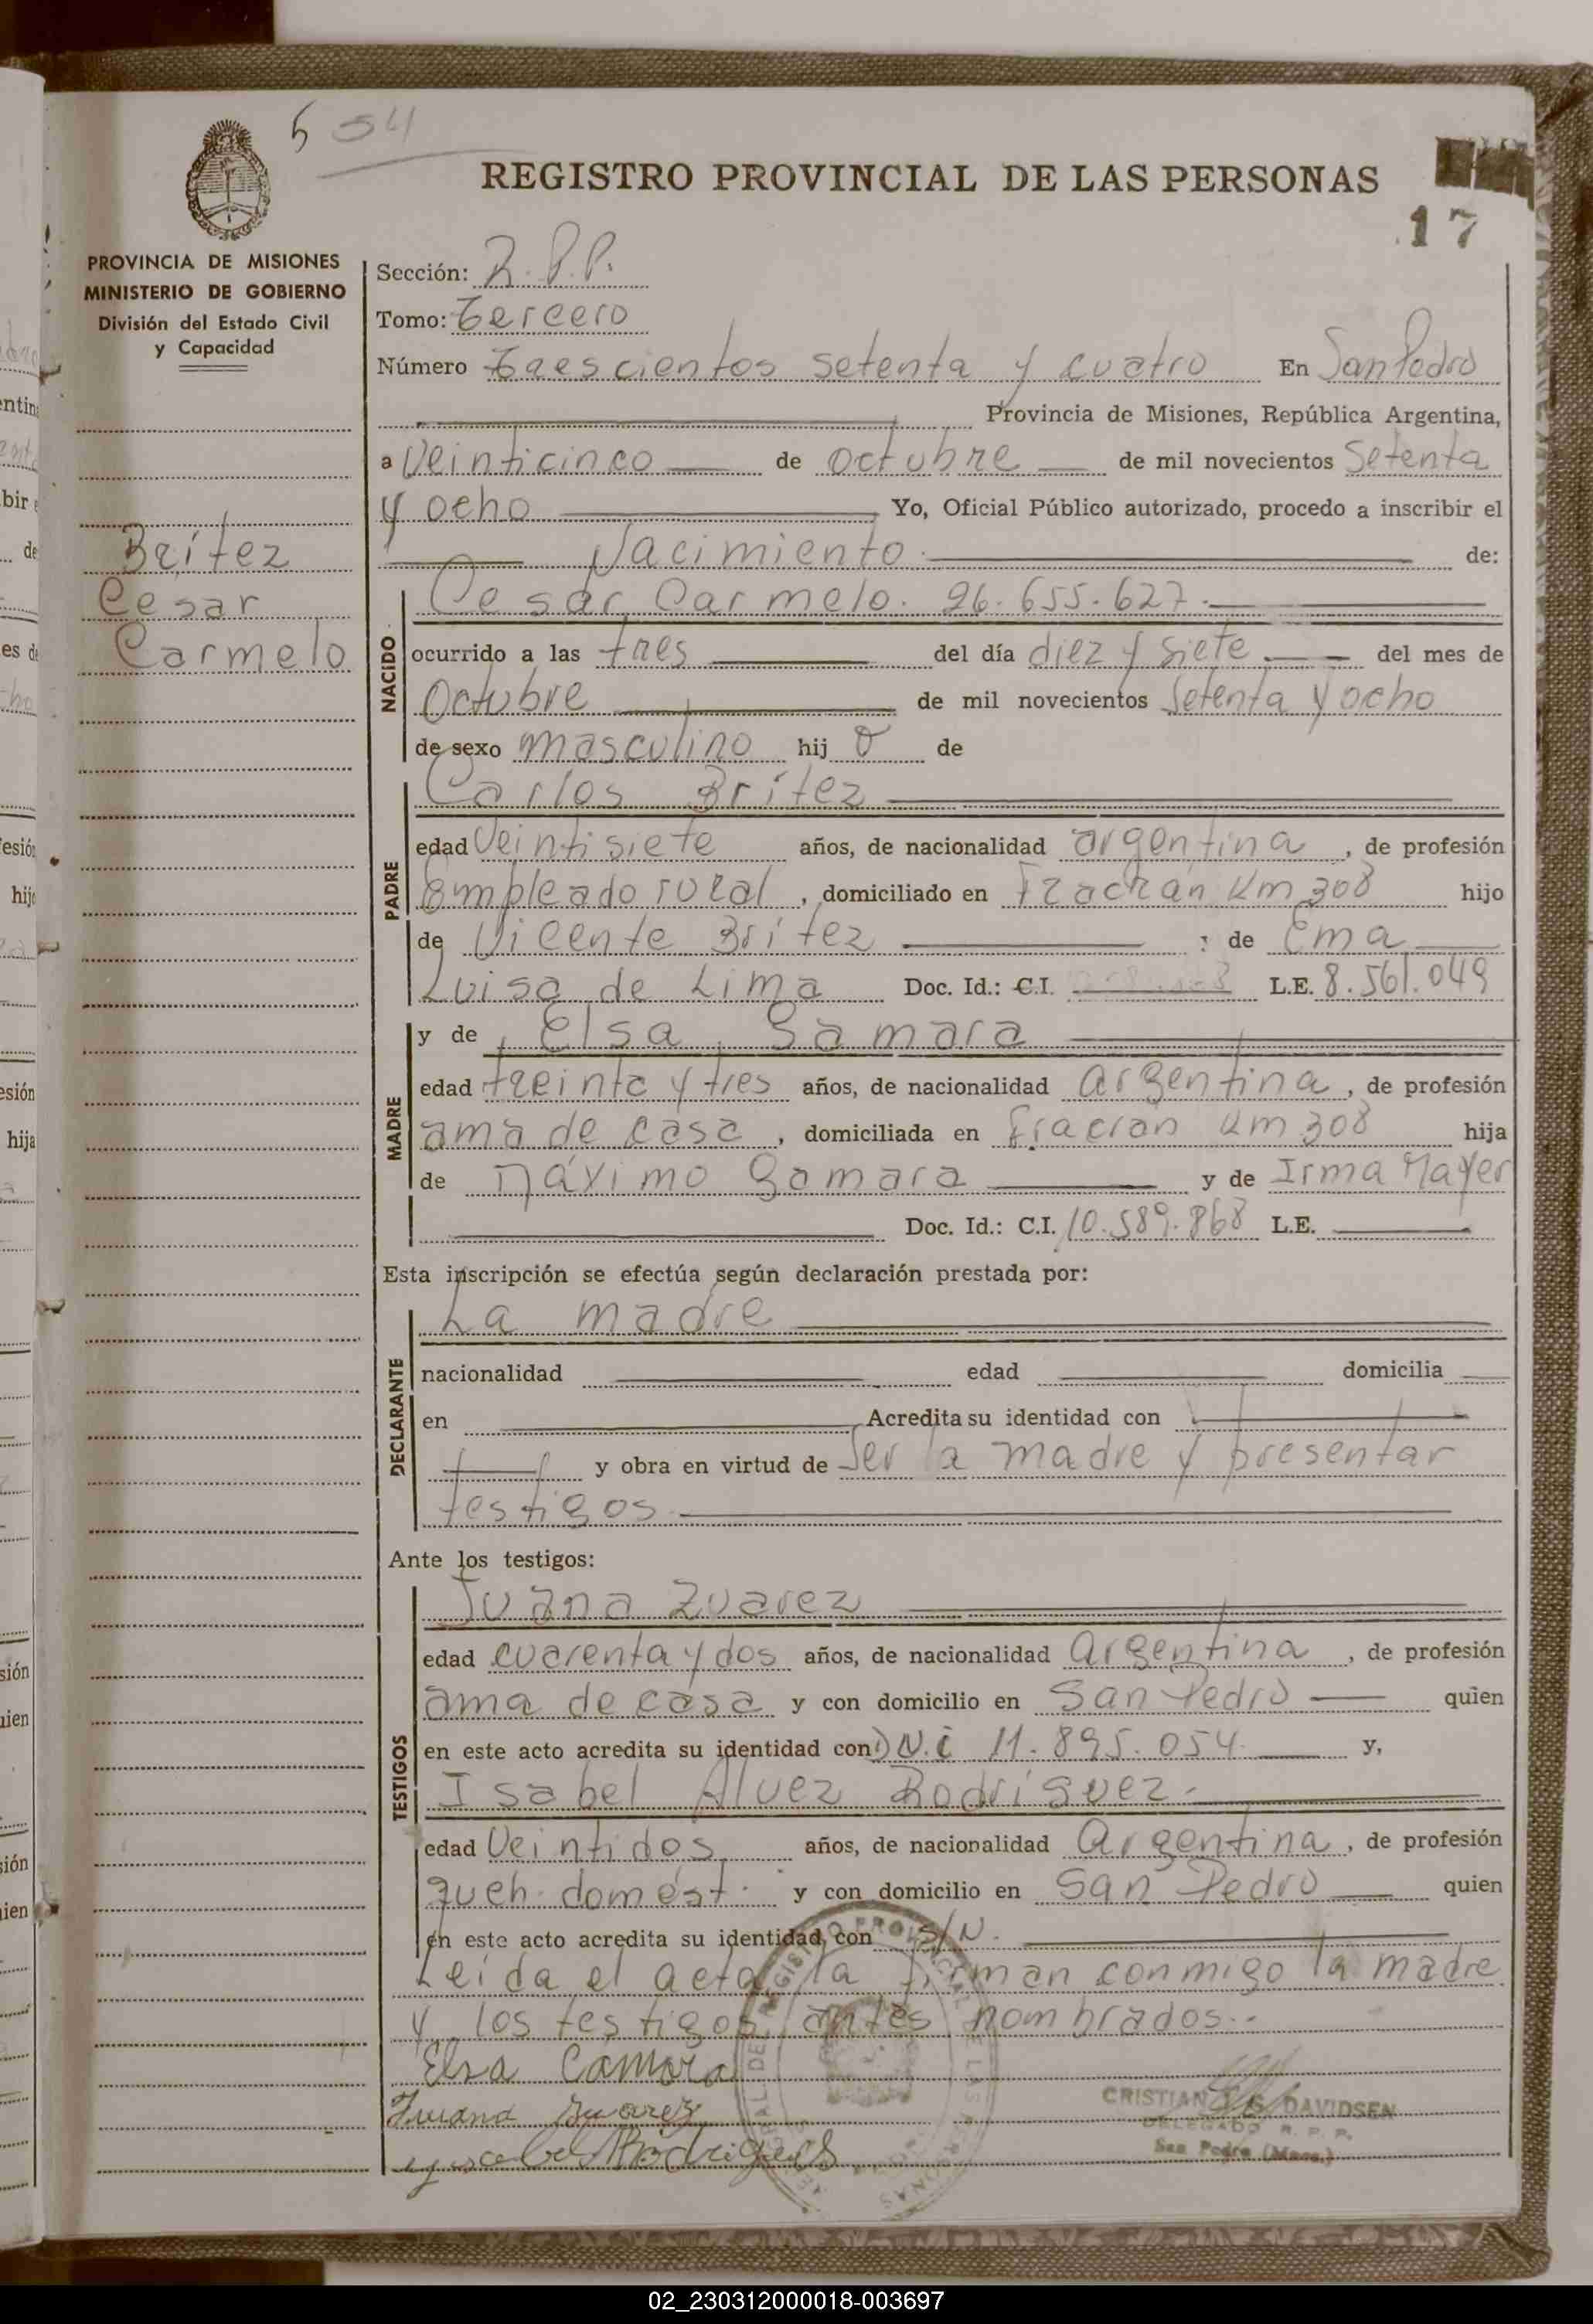 5 54
REGISTRO PROVINCIAL DE LAS PERSONAS
17
PROVINCIA DE MISIONES
MINISTERIO DE GOBIERNO
División del Estado Civil
y Capacidad
Britez
Cesar
Carmelo
Sección: R.P.P.
Tomo: tercero
Número trescientos setenta y cuatro En San Pedro
Provincia de Misiones, República Argentina,
a veinticinco de octubre de mil novecientos setenta
y ocho Yo, Oficial Público autorizado, procedo a inscribir el
Nacimiento de:
NACIDO
Cesar Carmelo. 26.655.627.
ocurrido a las tres del día diez y siete del mes de
Octubre de mil novecientos setenta y ocho
de sexo masculino hij o de
PADRE
Carlos Brítez
edad veintisiete años, de nacionalidad argentina, de profesión
Empleado rural, domiciliado en Fracrán Km 308 hijo
de Vicente Brítez y de Ema
Luisa de Lima Doc. Id.: C.I. L.E. 8.561.049
MADRE
y de Elsa Gamara
edad treinta y tres años, de nacionalidad argentina, de profesión
ama de casa, domiciliada en fracran Km 308 hija
de Máximo Gamara y de Irma Mayer
Doc. Id.: C.I. 10.589.868 L.E.
Esta inscripción se efectúa según declaración prestada por:
DECLARANTE
La madre
nacionalidad edad domicilia
en Acredita su identidad con
y obra en virtud de ser la madre y presentar
testigos
Ante los testigos:
TESTIGOS
Juana Zuarez
edad cuarenta y dos años, de nacionalidad Argentina, de profesión
ama de casa y con domicilio en San Pedro quien
en este acto acredita su identidad con D.N.i 11.895.054 y,
Isabel Alvez Rodríguez.
edad Veintidos años, de nacionalidad Argentina, de profesión
queh. domést. y con domicilio en San Pedro quien
en este acto acredita su identidad con S/N.
Leída el acta la firman conmigo la madre
y los testigos antes nombrados..
Elsa Camara
Juana Suarez
ysabel Rodrigues
CRISTIAN DAVIDSEN
DELEGADO R. P. P.
San Pedro (Mnes.)
02_230312000018-003697